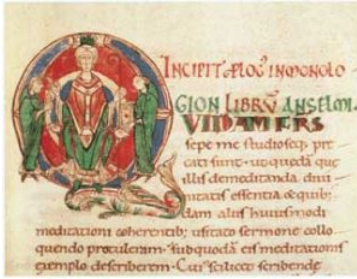 INCIPIT PLOG' IN MONOLO
GION LIBRV ANSELMI
QVIDAM FRS
sepe me studioseq; pre
cati sunt · ut quedā que
illis de meditanda diui
nitatis essentia & quib;
dam aliis huiusmodi
meditationi coherentib; usitato sermone collo
quendo protuleram · sub quodā eis meditationis
exemplo describerem · Cui' scilicet scribende